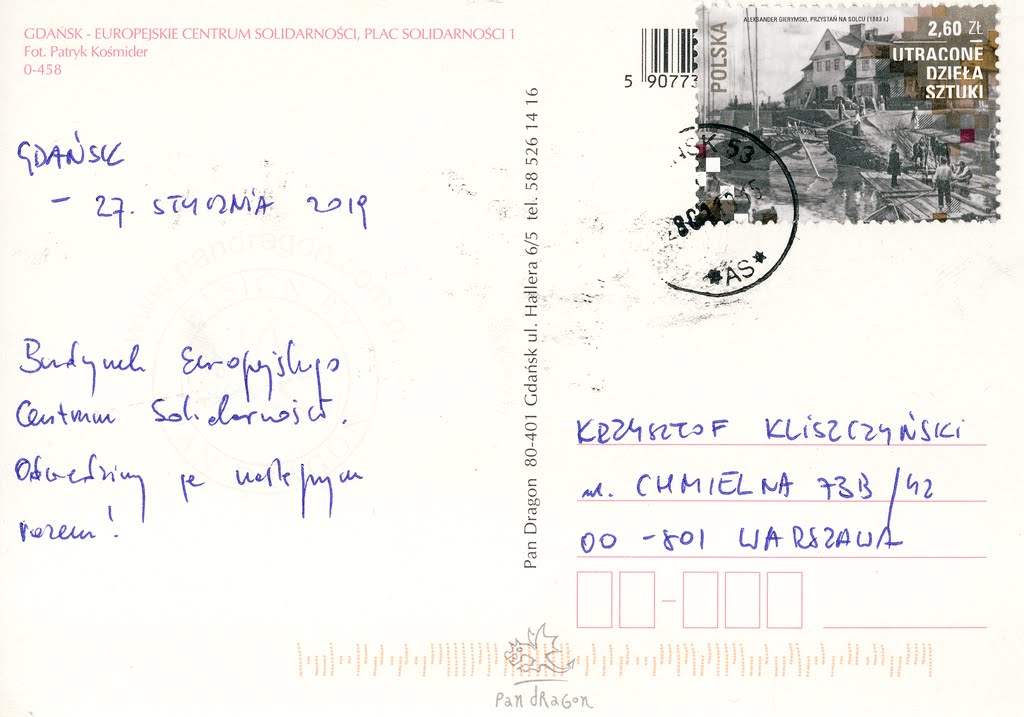 GDAŃSK - EUROPEJSKIE CENTRUM SOLIDARNOŚCI, PLAC SOLIDARNOŚCI 1
Fot. Patryk Kośmider
0-458
GDAŃSK
- 27. STYCZNIA 2019
Budynek Europejskiego
Centrum Solidarności.
Odwiedzimy je następnym
razem!
Pan Dragon 80-401 Gdańsk ul. Hallera 6/5 tel. 58 526 14 16
5 90773
POLSKA
ALEKSANDER GIERYMSKI, PRZYSTAŃ NA SOLCU (1883 r.)
2,60 ZŁ
UTRACONE
DZIEŁA
SZTUKI
ŃSK 53
*AS*
KRZYSZTOF KLISZCZYŃSKI
ul. CHMIELNA 73B/42
00-801 WARSZAWA
pan dragon